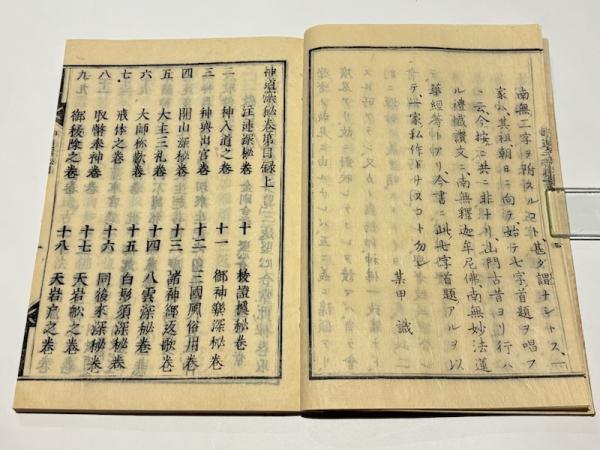 南無二字ヲ削スルコト甚タ謂ナシトス、一
家ハ其祖朝日ニ向テ始テ七字首題ヲ唱フ
ト云今按ニ共ニ非ナリ、山門古昔ヨリ行ハ
ル禮懺讃文ニ、南無釋迦牟尼佛、南無妙法蓮
華經等トアリ、今書ニ此七字首題アルヲ以
テ一家私作トナスコト勿レ
某甲識
神道深秘巻第目録上
一 注連深秘巻 十 秘巻
二 神人道之巻 十一 御神樂深秘巻
三 神輿出宮巻 十二 三國風俗用巻
四 開山深秘巻 十三 諸神御返歌巻
五 大主三礼巻 十四 八雲深秘巻
六 大師秘歌巻 十五 深秘巻
七 戒体之巻 十六 同後來深秘巻
八 取幣奉神巻 十七 天岩松之巻
九 御秡除之巻 十八 天岩戸之巻